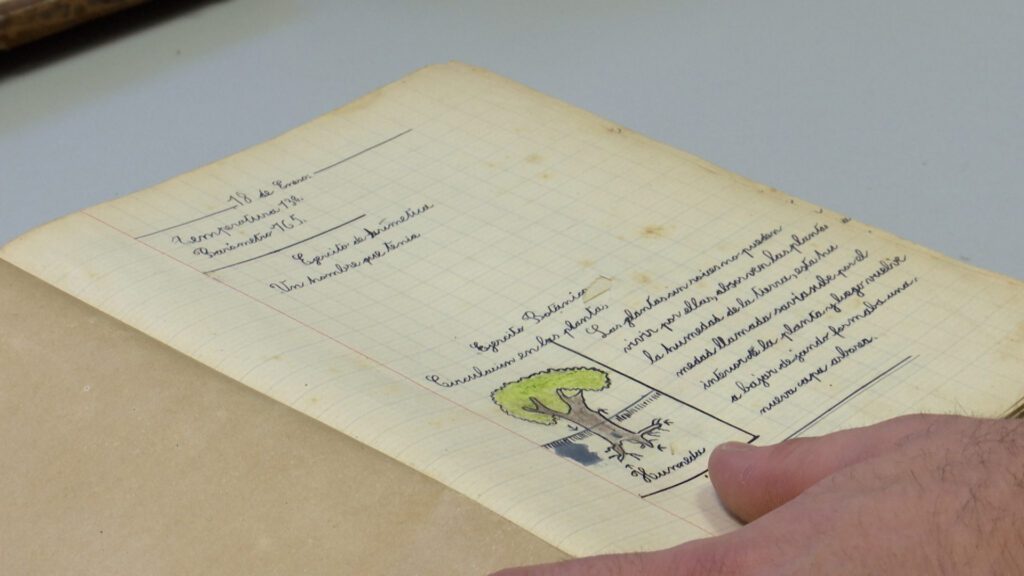 18 de Enero
Temperatura 13º.
Barómetro 765.
Ejercito de Arimetica
Un hombre que tenia
Ejercito Botanica
en las plantas
Las plantas sin raices no pueden
vivir, por ellas, absorven las plantas
la humedas de la tierra, esta hu
medas llamada savia sube por el
interior de la planta y luego vuelve
a bajar dejando formaba una
nueva capa
Humedas